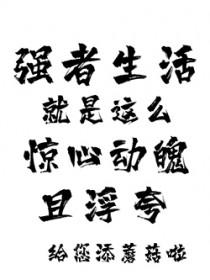 强者生活
就是这么
惊心动魄
且浮夸
给您添蘑菇啦